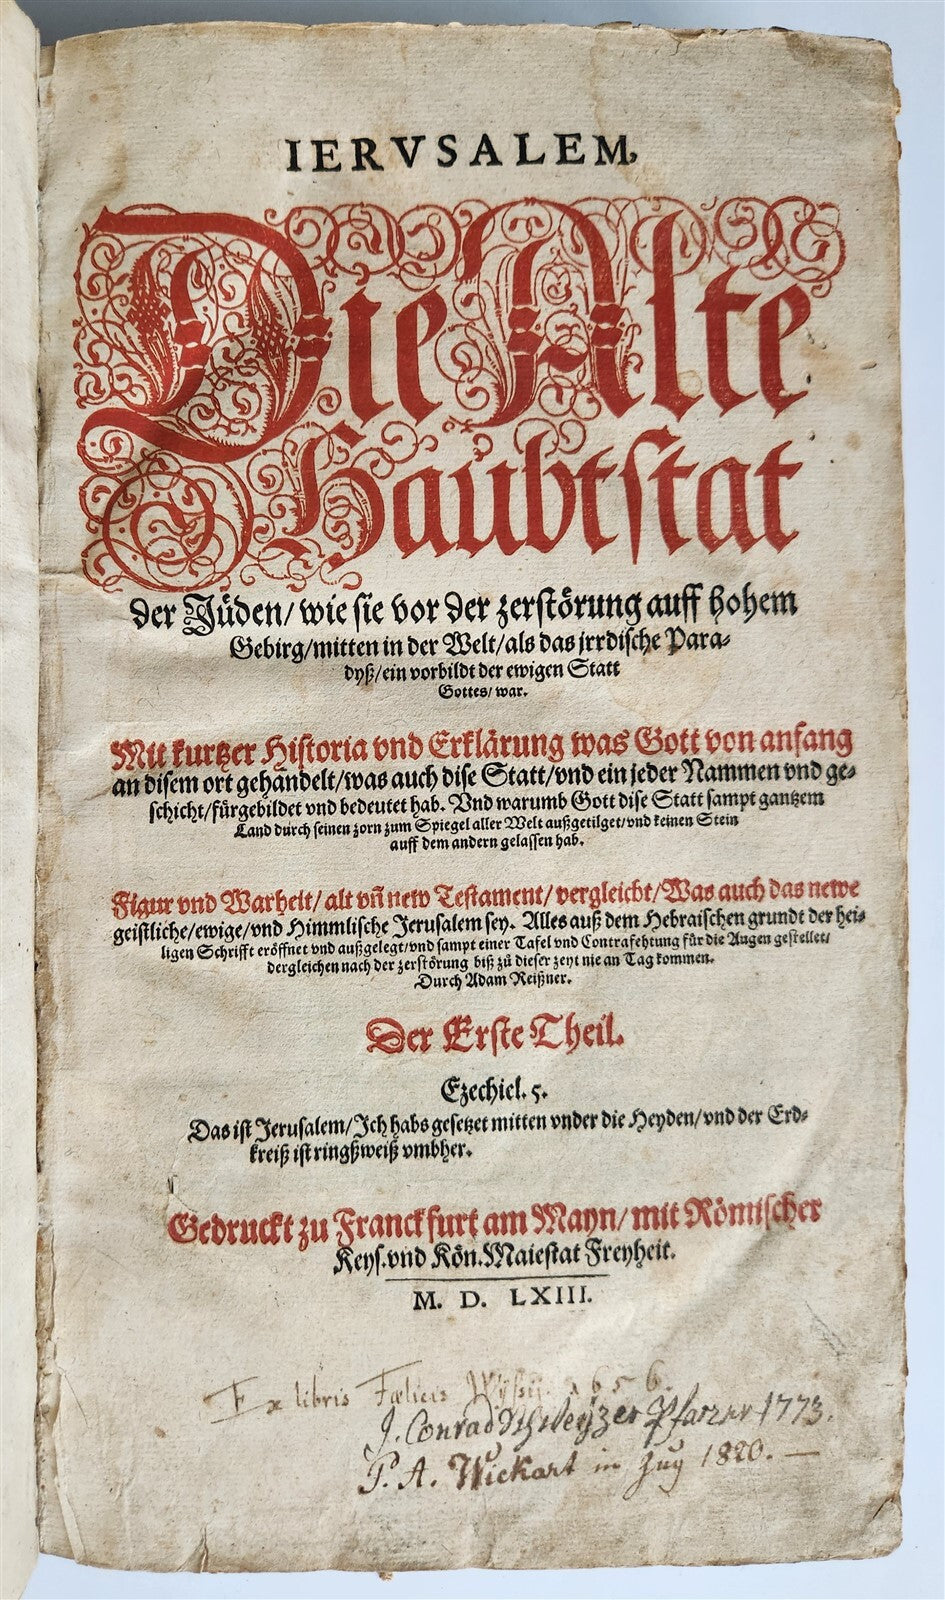 IERVSALEM,
Die Alte
Haubtſtat
der Jüden/ wie ſie vor der zerſtörung auff hohem
Gebirg/mitten in der Welt/als das jrrdiſche Para-
dyß/ein vorbildt der ewigen Statt
Gottes/ war.
Mit kurtzer Hiſtoria vnd Erklärung was Gott von anfang
an diſem ort gehandelt/was auch diſe Statt/vnd ein jeder Nammen vnd ge-
ſchicht/fürgebildet vnd bedeutet hab. Vnd warumb Gott diſe Statt ſampt gantzem
Land durch ſeinen zorn zum Spiegel aller Welt außgetilget/vnd keinen Stein
auff dem andern gelaſſen hab.
Figur vnd Warheit/ alt vñ new Teſtament/ vergleicht/Was auch das newe
geiſtliche/ewige/vnd Himmliſche Jeruſalem ſey. Alles auß dem Hebraiſchen grundt der hei-
ligen Schrifft eröffnet vnd außgelegt/vnd ſampt einer Tafel vnd Contrafehtung für die Augen geſtellet/
dergleichen nach der zerſtörung biß zů dieſer zeyt nie an Tag kommen.
Durch Adam Reißner.
Der Erſte Theil.
Ezechiel. 5.
Das iſt Jeruſalem/Ich habs geſetzet mitten vnder die Heyden/vnd der Erd-
kreiß iſt ringßweiß vmbher.
Gedruckt zu Franckfurt am Mayn/ mit Römiſcher
Keyſ. vnd Kön. Maieſtat Freyheit.
M. D. LXIII.
Ex libris Fælicis Wyſſij. 1656.
J. Conrad Schweyzer Pfarrer 1773.
P. A. Wickart in Zug 1820. —